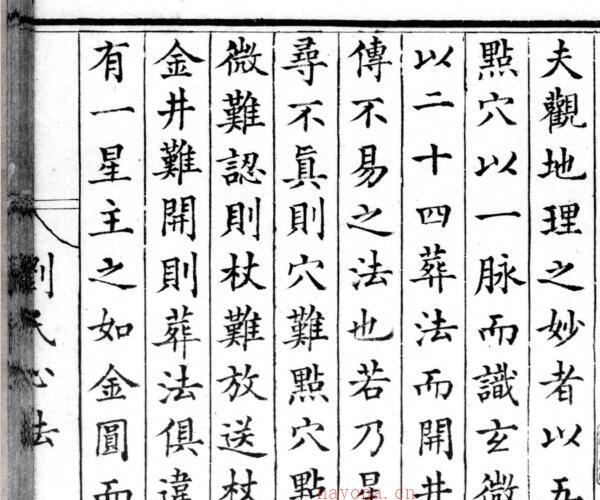 夫觀地理之妙者以五
點穴以一脉而識玄微
以二十四葬法而開井
傳不易之法也若乃
尋不眞則穴難點穴點
微難認則杖難放送杖
金井難開則葬法俱違
有一星主之如金圓而
劉氏心法
nayona.cn